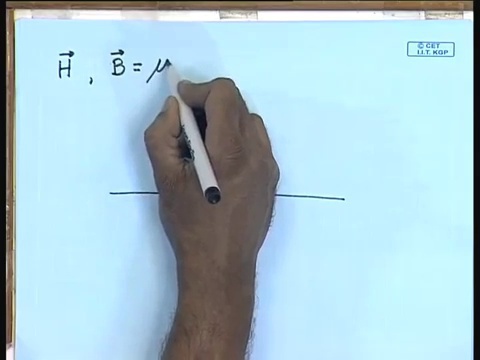 H⃗ , B⃗ = μ
© CET
I.I.T. KGP